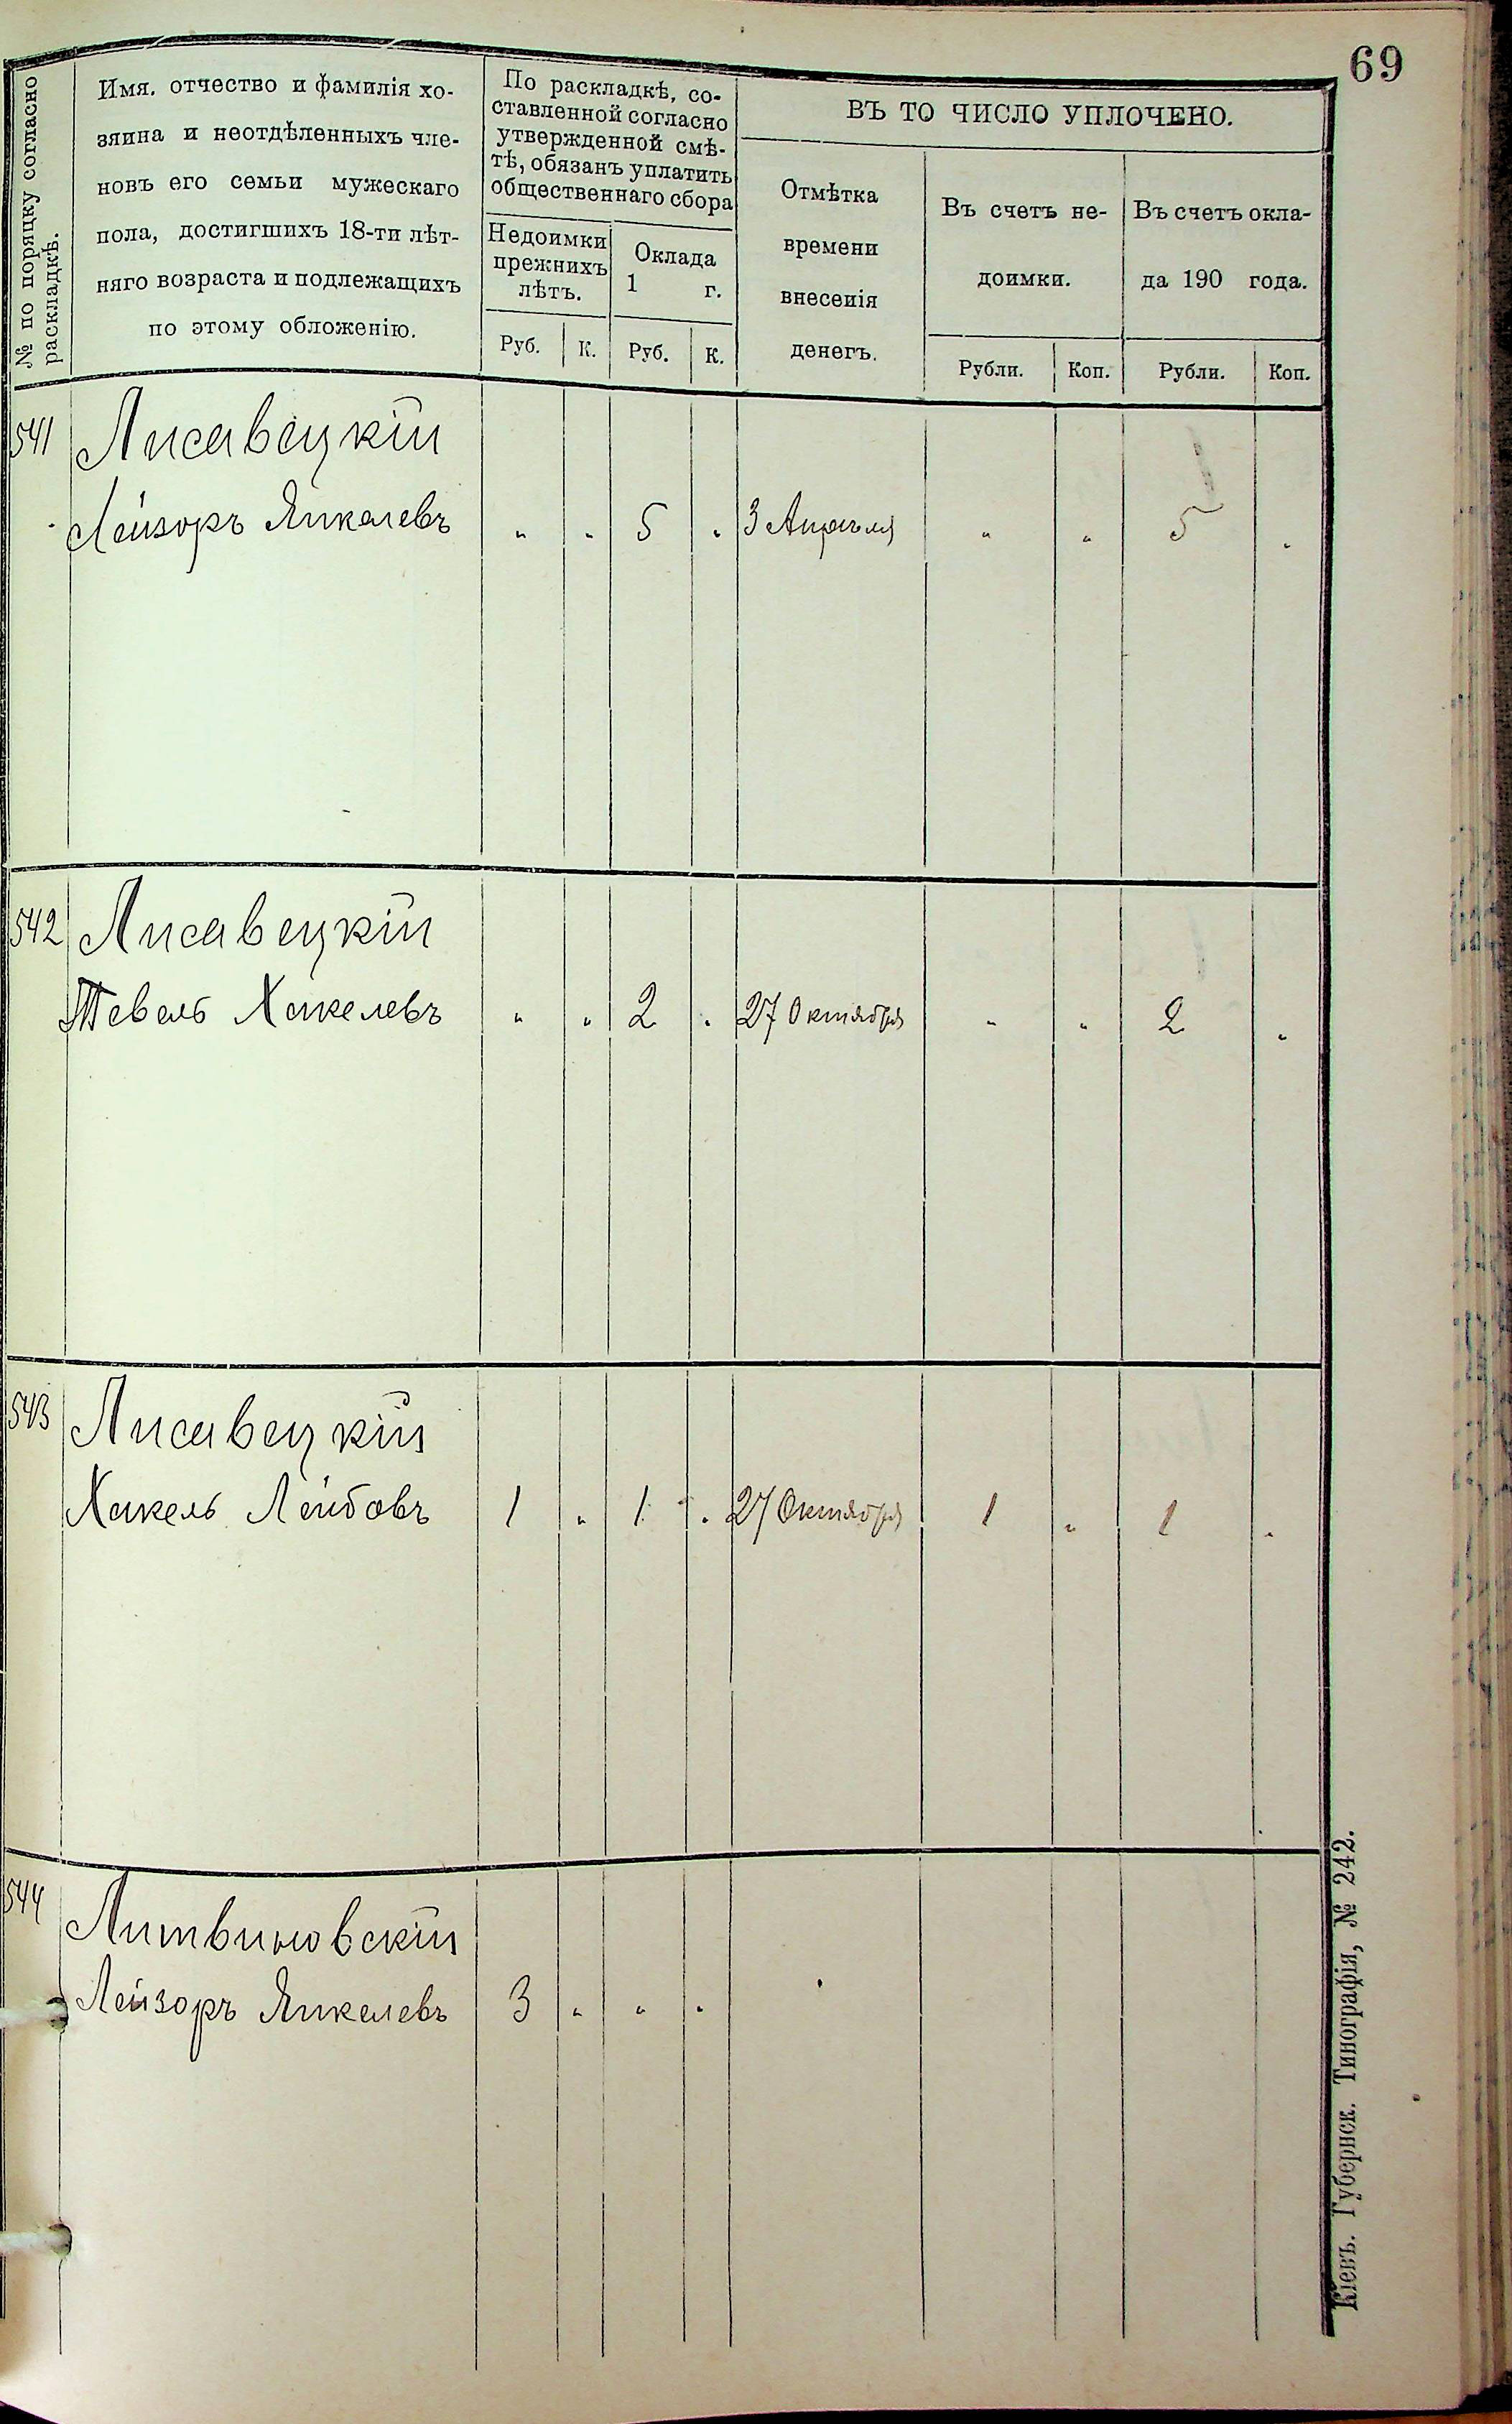 69
№ по порядку согласно
раскладкѣ.
Имя. отчество и фамилія хо-
зяина и неотдѣленныхъ чле-
новъ его семьи мужескаго
пола, достигшихъ 18-ти лѣт-
няго возраста и подлежащихъ
по этому обложенію.
По раскладкѣ, со-
ставленной согласно
утвержденной смѣ-
тѣ, обязанъ уплатить
общественнаго сбора
Недоимки
прежнихъ
лѣтъ.
Оклада
1 г.
Руб. К. Руб. К.
ВЪ ТО ЧИСЛО УПЛОЧЕНО.
Отмѣтка
времени
внесенія
денегъ.
Въ счетъ не-
доимки.
Въ счетъ окла-
да 190 года.
Рубли. Коп. Рубли. Коп.
541 Лисавецкій
Лейзоръ Янкелевъ " " 5 " 3 Апрѣля " " 5 "
542 Лисавецкій
Тевель Хакелевъ " " 2 " 27 Октября " " 2 "
543 Лисавецкій
Хакель Лейбовъ 1 " 1 " 27 Октября 1 " 1 "
544 Литвиновскій
Лейзоръ Янкелевъ 3 " " "
Кіевъ. Губернск. Типографія, № 242.